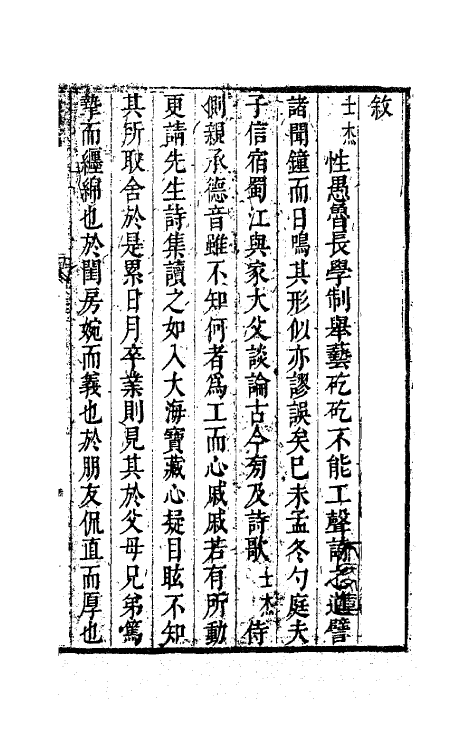 敘
士杰性愚魯長學制舉藝矻矻不能工聲詩之道譬
諸聞鐘而日鳴其形似亦謬誤矣巳未孟冬勺庭夫
子信宿蜀江與家大父談論古今旁及詩歌士杰侍
側親承德音雖不知何者爲工而心戚戚若有所動
更請先生詩集讀之如入大海寶藏心疑目眩不知
其所取舍於是累日月卒業則見其於父母兄弟篤
摯而纏綿也於閨房婉而義也於朋友侃直而厚也